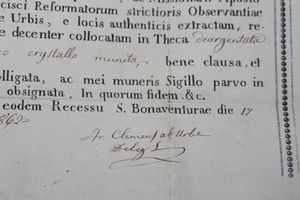 cisci Reformatorum strictioris Observantiae
Urbis, e locis authenticis extractam, re-
decenter collocatam in Theca deargentata
crystallo munita, bene clausa, et
olligata, ac mei muneris Sigillo parvo in
obsignata. In quorum fidem &c.
eodem Recessu S. Bonaventurae die 17
1862=
Fr. Clemens ab Urbe